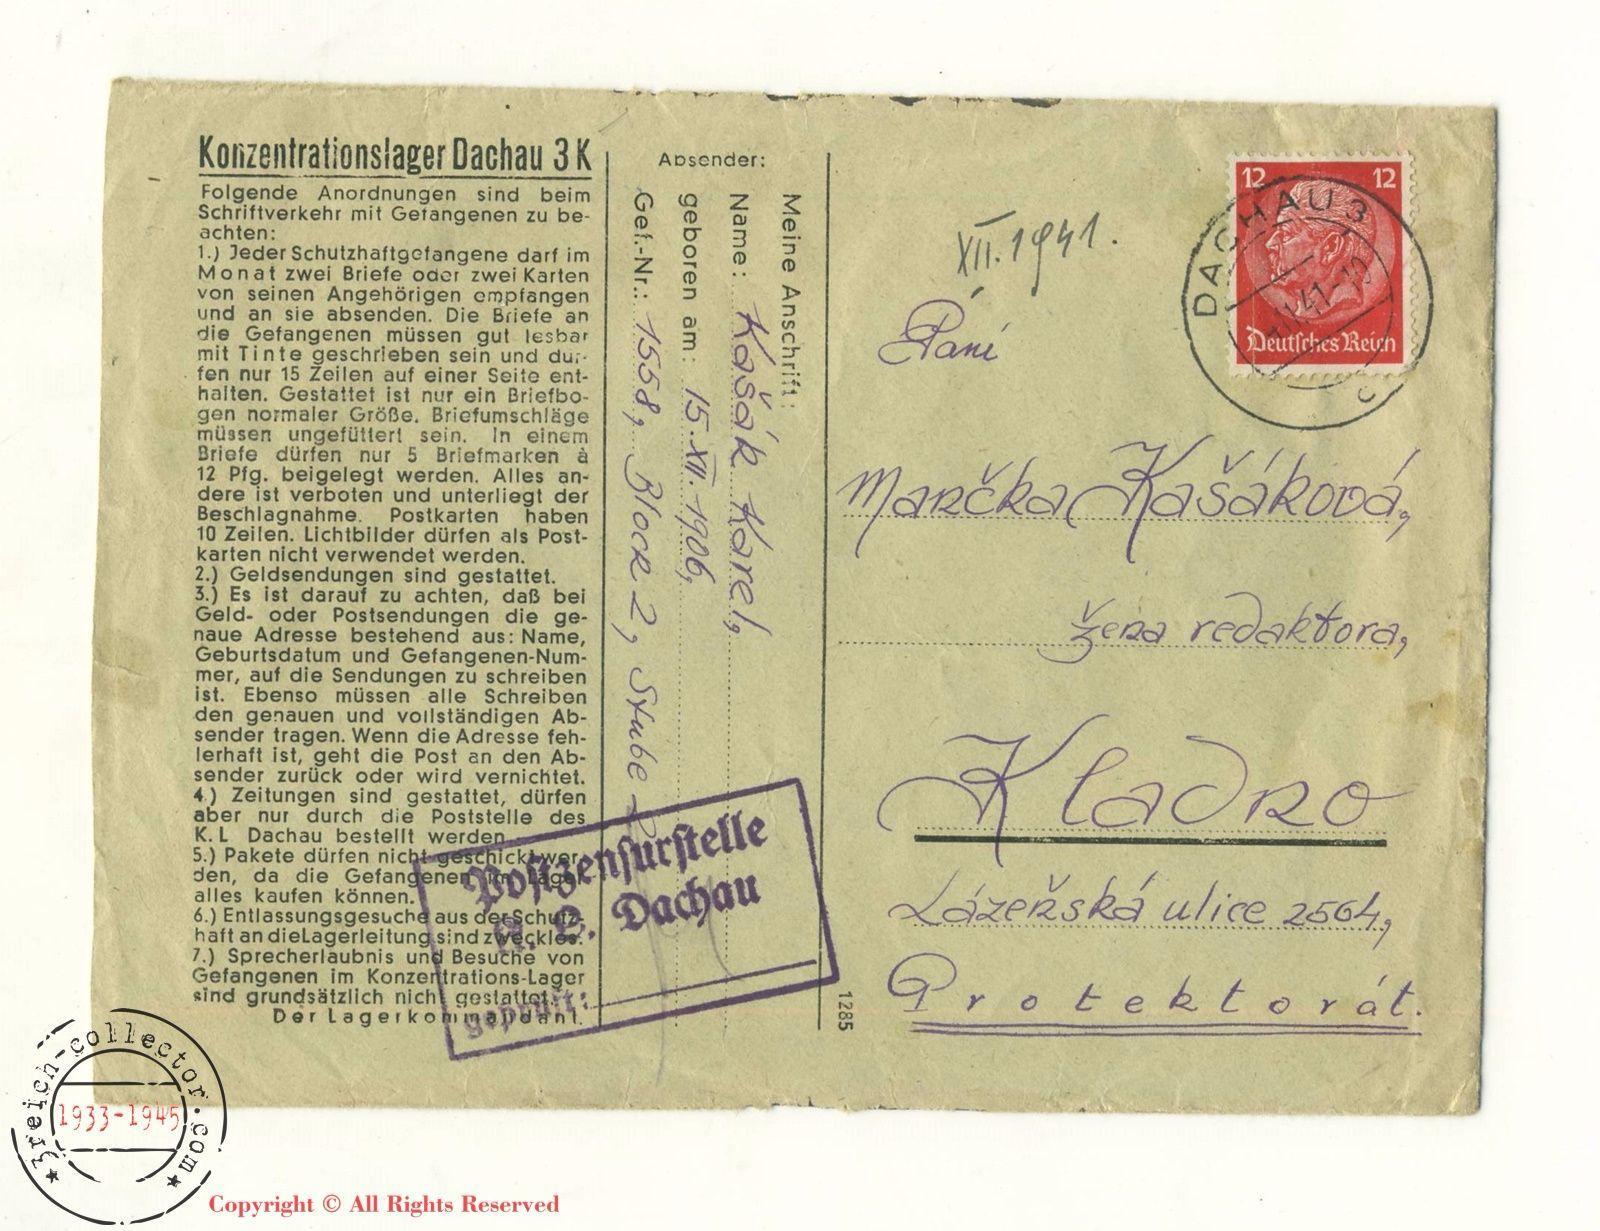 Konzentrationslager Dachau 3 K
Folgende Anordnungen sind beim
Schriftverkehr mit Gefangenen zu be-
achten:
1.) Jeder Schutzhaftgefangene darf im
Monat zwei Briefe oder zwei Karten
von seinen Angehörigen empfangen
und an sie absenden. Die Briefe an
die Gefangenen müssen gut lesbar
mit Tinte geschrieben sein und dür-
fen nur 15 Zeilen auf einer Seite ent-
halten. Gestattet ist nur ein Briefbo-
gen normaler Größe. Briefumschläge
müssen ungefüttert sein. In einem
Briefe dürfen nur 5 Briefmarken à
12 Pfg. beigelegt werden. Alles an-
dere ist verboten und unterliegt der
Beschlagnahme. Postkarten haben
10 Zeilen. Lichtbilder dürfen als Post-
karten nicht verwendet werden.
2.) Geldsendungen sind gestattet.
3.) Es ist darauf zu achten, daß bei
Geld- oder Postsendungen die ge-
naue Adresse bestehend aus: Name,
Geburtsdatum und Gefangenen-Num-
mer, auf die Sendungen zu schreiben
ist. Ebenso müssen alle Schreiben
den genauen und vollständigen Ab-
sender tragen. Wenn die Adresse feh-
lerhaft ist, geht die Post an den Ab-
sender zurück oder wird vernichtet.
4.) Zeitungen sind gestattet, dürfen
aber nur durch die Poststelle des
K. L Dachau bestellt werden.
5.) Pakete dürfen nicht geschickt wer-
den, da die Gefangenen im Lager
alles kaufen können.
6.) Entlassungsgesuche aus der Schutz-
haft an die Lagerleitung sind zwecklos.
7.) Sprecherlaubnis und Besuche von
Gefangenen im Konzentrations-Lager
sind grundsätzlich nicht gestattet.
Der Lagerkommandant.
Absender:
Meine Anschrift:
Name: Kašák Karel,
geboren am: 15. XII. 1906,
Gef.-Nr.: 1558, Block 2, Stube
Postzensurstelle
K. L. Dachau
geprüft:
1285
XII. 1941.
12 12
Deutsches Reich
DACHAU 3
41
c
Paní
Marčka Kašáková,
žena redaktora,
Kladno
Lázeňská ulice 2564,
Protektorát.
3reich-collector.com
1933-1945
Copyright © All Rights Reserved